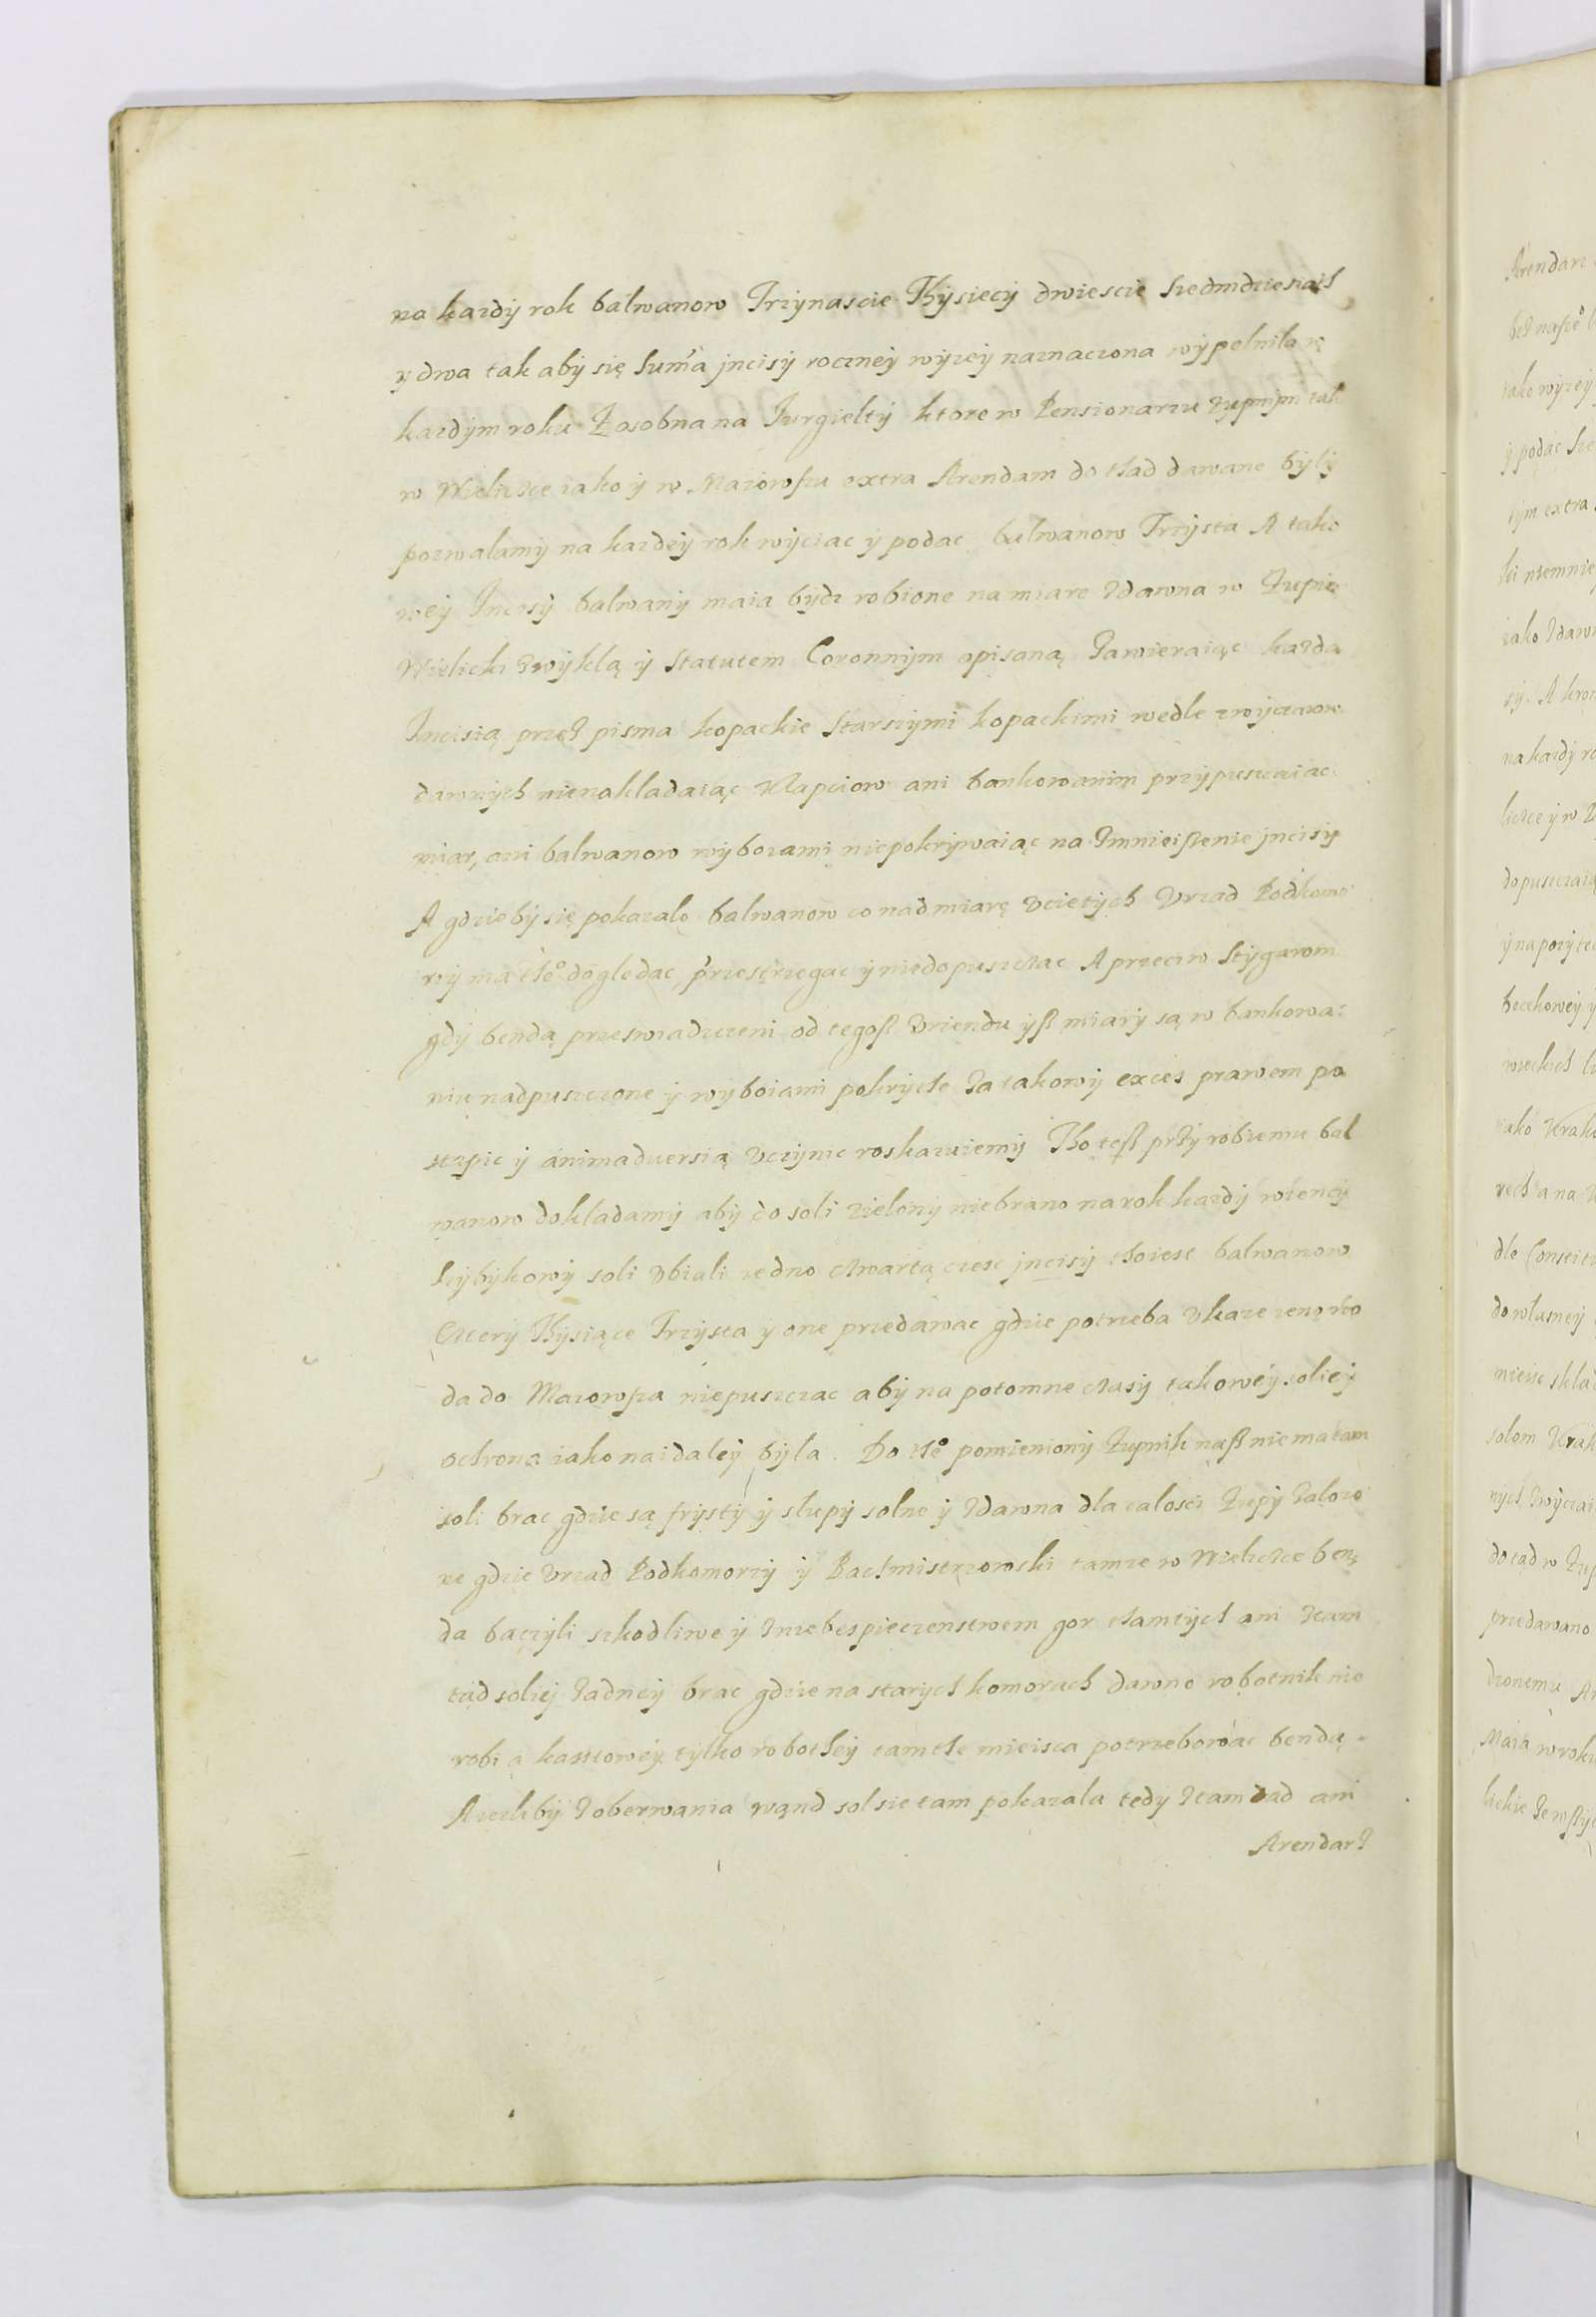 na kazdÿ rok balwanow Trzÿnascie Thÿsiecÿ dwiescie siedmdziesiath
ÿ dwa tak abÿ się Sum̃a jncisÿ rocznéÿ wÿzeÿ naznaczona wÿpelnila w
kazdÿm roku Zosobna na Jurgieltÿ ktore w Pensionarzu zupnÿm tak
w Wieliczce iako ÿ w Mazowszu extra Arendam do thad dawane bÿlÿ
pozwalamÿ na kazdeÿ rok wÿciac ÿ podac balwanow Trzÿsta A tako
weÿ Jncisÿ balwanÿ maia bÿdz robione na miare zdawna w Zupie
Wielicki zwÿklą ÿ Statutem Coronnÿm opisaną Zawieraiąc kazda
Jncisią przez pisma kopackie Starszÿmi kopackimi wedle zwÿczaiow
dawnÿch nienakladaiąc Klapciow ani bankowanim przÿpuszczaiac
miar, ani balwanow wÿboiami niepokrÿwaiąc na Zmnieiszenie jncisÿ
A gdziebÿ się pokazalo balwanow co nad miarę vcietÿch Vrzad Podkomo
rzÿ ma the° dogledac, przestrzegac ÿ niedopuszczac A przeciw Stÿgarom
gdÿ bendą przeswiadczeni od tegosz Vriendu ÿsz miarÿ są w bankowa:
niu nadpuszczone ÿ wÿboiami pokrÿthe Za takowÿ exces prawem po
stzpic ÿ animaduersią vczÿnic roskazuiemÿ Tho tesz przÿ robiemu bal
wanow dokladamÿ abÿ co soli zielonÿ niebrano na rok kazdÿ wiencÿ
Szÿbÿkowÿ soli vbiali iedno chwartą czesc jncisÿ thoiest balwanow
Czterÿ Thÿsiące Trzÿsta ÿ one przedawac gdzie potrzeba vkaze ieno wo
da do Mazowsza niepuszczac abÿ na potomne czasÿ takoweÿ solieÿ
ochrona iako naidaleÿ bÿla. Do the° pomienionÿ Zupnik nasz nie ma tam
soli brac gdzie są frÿstÿ ÿ slupÿ solne ÿ zdawna dla calosci Zupÿ Zalozo
ne gdzie Vrzad Podkomorzÿ ÿ Bachmistrzowski tamze w Wieliczce ben
da baczÿli szkodliwe ÿ zniebespieczenstwem gor thamtÿch ani ztam
tąd solieÿ Zadneÿ brac gdzie na starÿch komorach dawno robotnik nie
robi ą kasztoweÿ tÿlko robotheÿ tamthe mieisca potrzebowac bendą.
A iezlibÿ Z oberwania wąnd sol sie tam pokazala tedÿ ztamtad ani
Arendarz